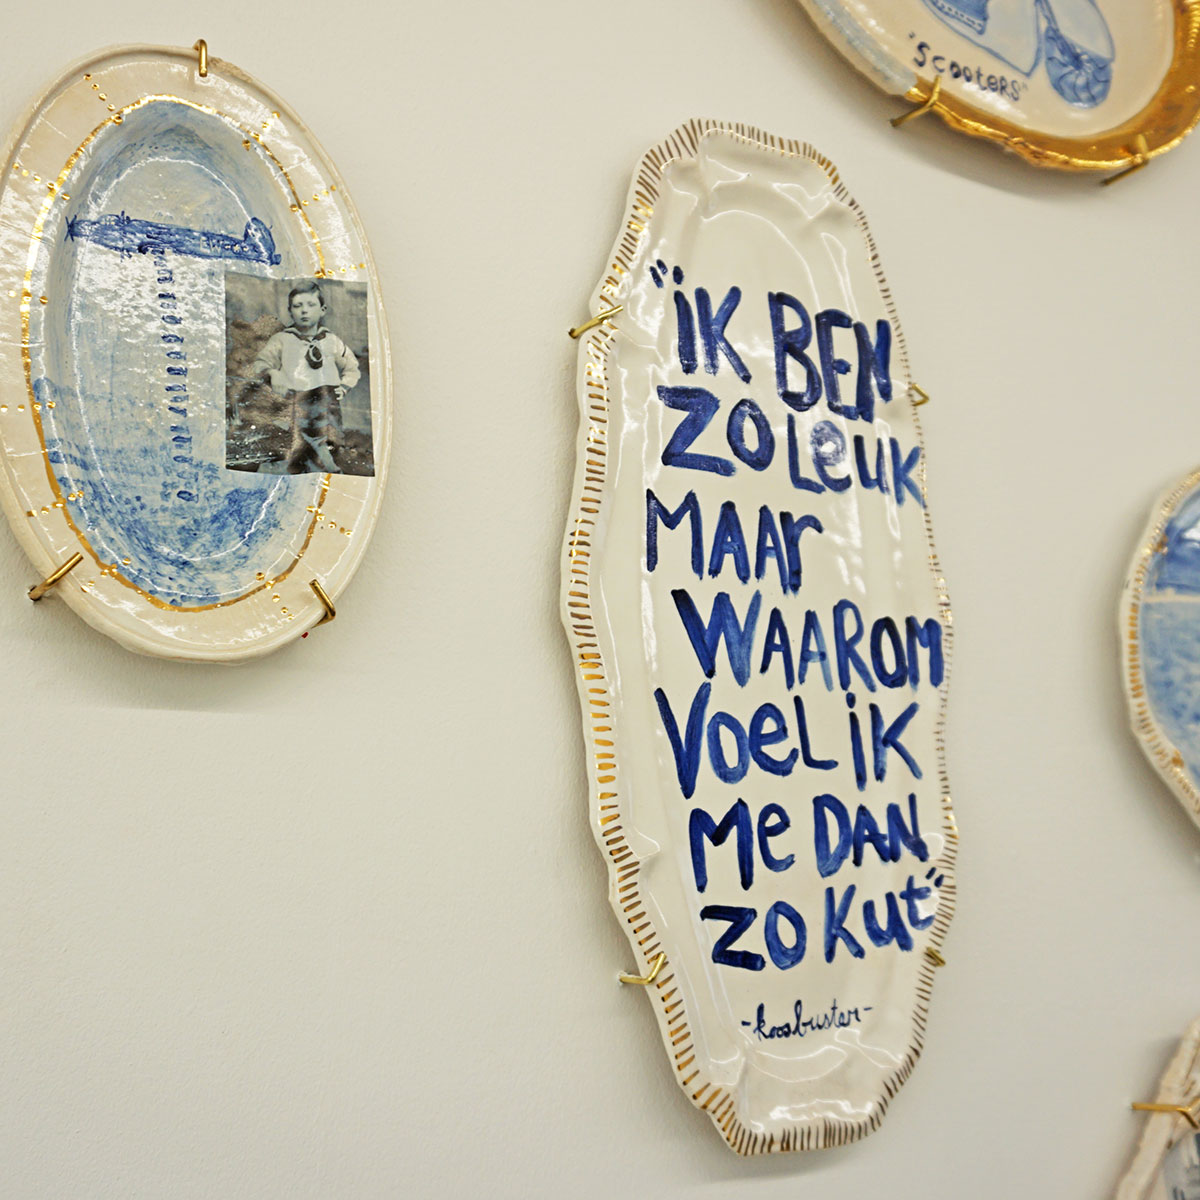 "Scooters"
"iK BEN
ZO LeUK
MAAr
WAAROM
VoeL iK
Me DAN
ZO KUt"
-koosbuster-